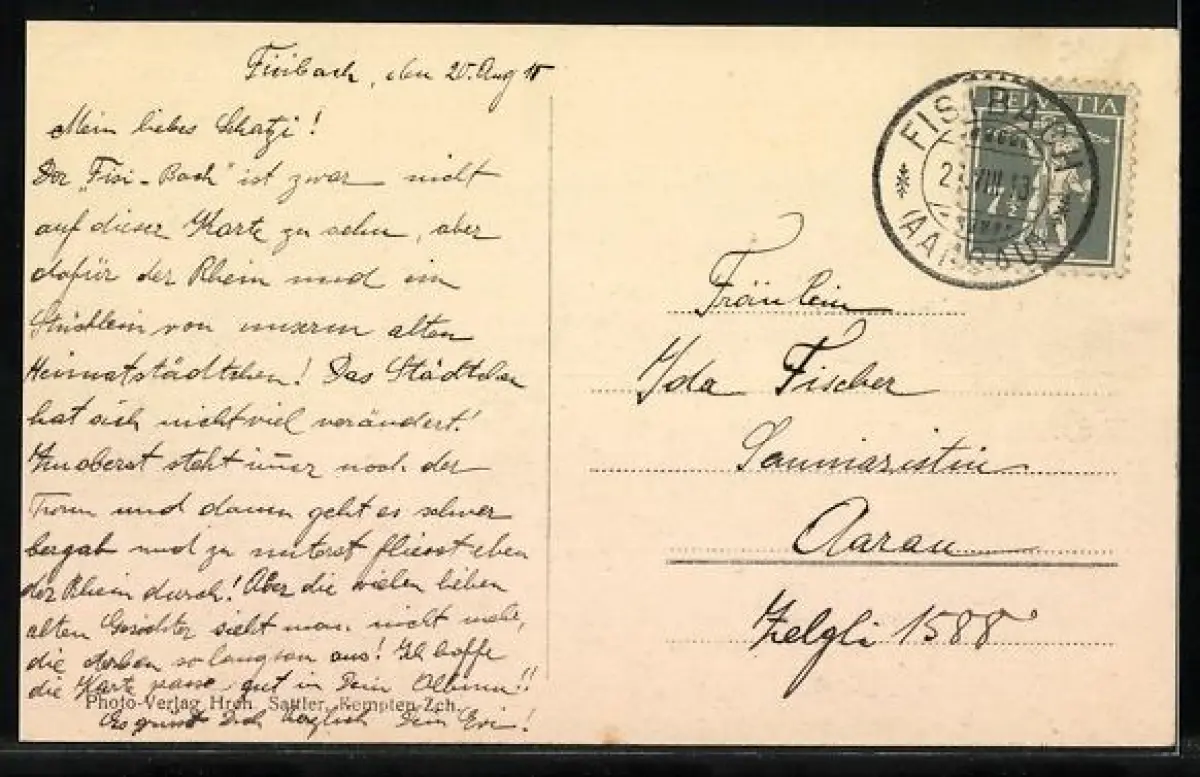 Fisibach, den 20. Aug
Mein liebes Schatzi!
Der "Fisi-Bach" ist zwar nicht
auf dieser Karte zu sehn, aber
dafür der Rhein und ein
Stücklein von unserem alten
Heimatstädtchen! Das Städtchen
hat sich nicht viel verändert!
Zuoberst steht immer noch der
Turm und dann geht es schwer
bergab und zu unterst fliesst eben
der Rhein durch! Aber die vielen lieben
alten Gesichter sieht man nicht mehr,
die sterben so langsam aus! Ich hoffe
die Karte passe gut in Dein Album!!
Photo-Verlag Hrch. Sattler, Kempten-Zch.
Es grüsst Dich herzlich Dein Evi!
HELVETIA
7½
FISIBACH
VIII.13
(AARGAU)
Fräulein
Ida Fischer
Seminaristin
Aarau
Zelgli 1588